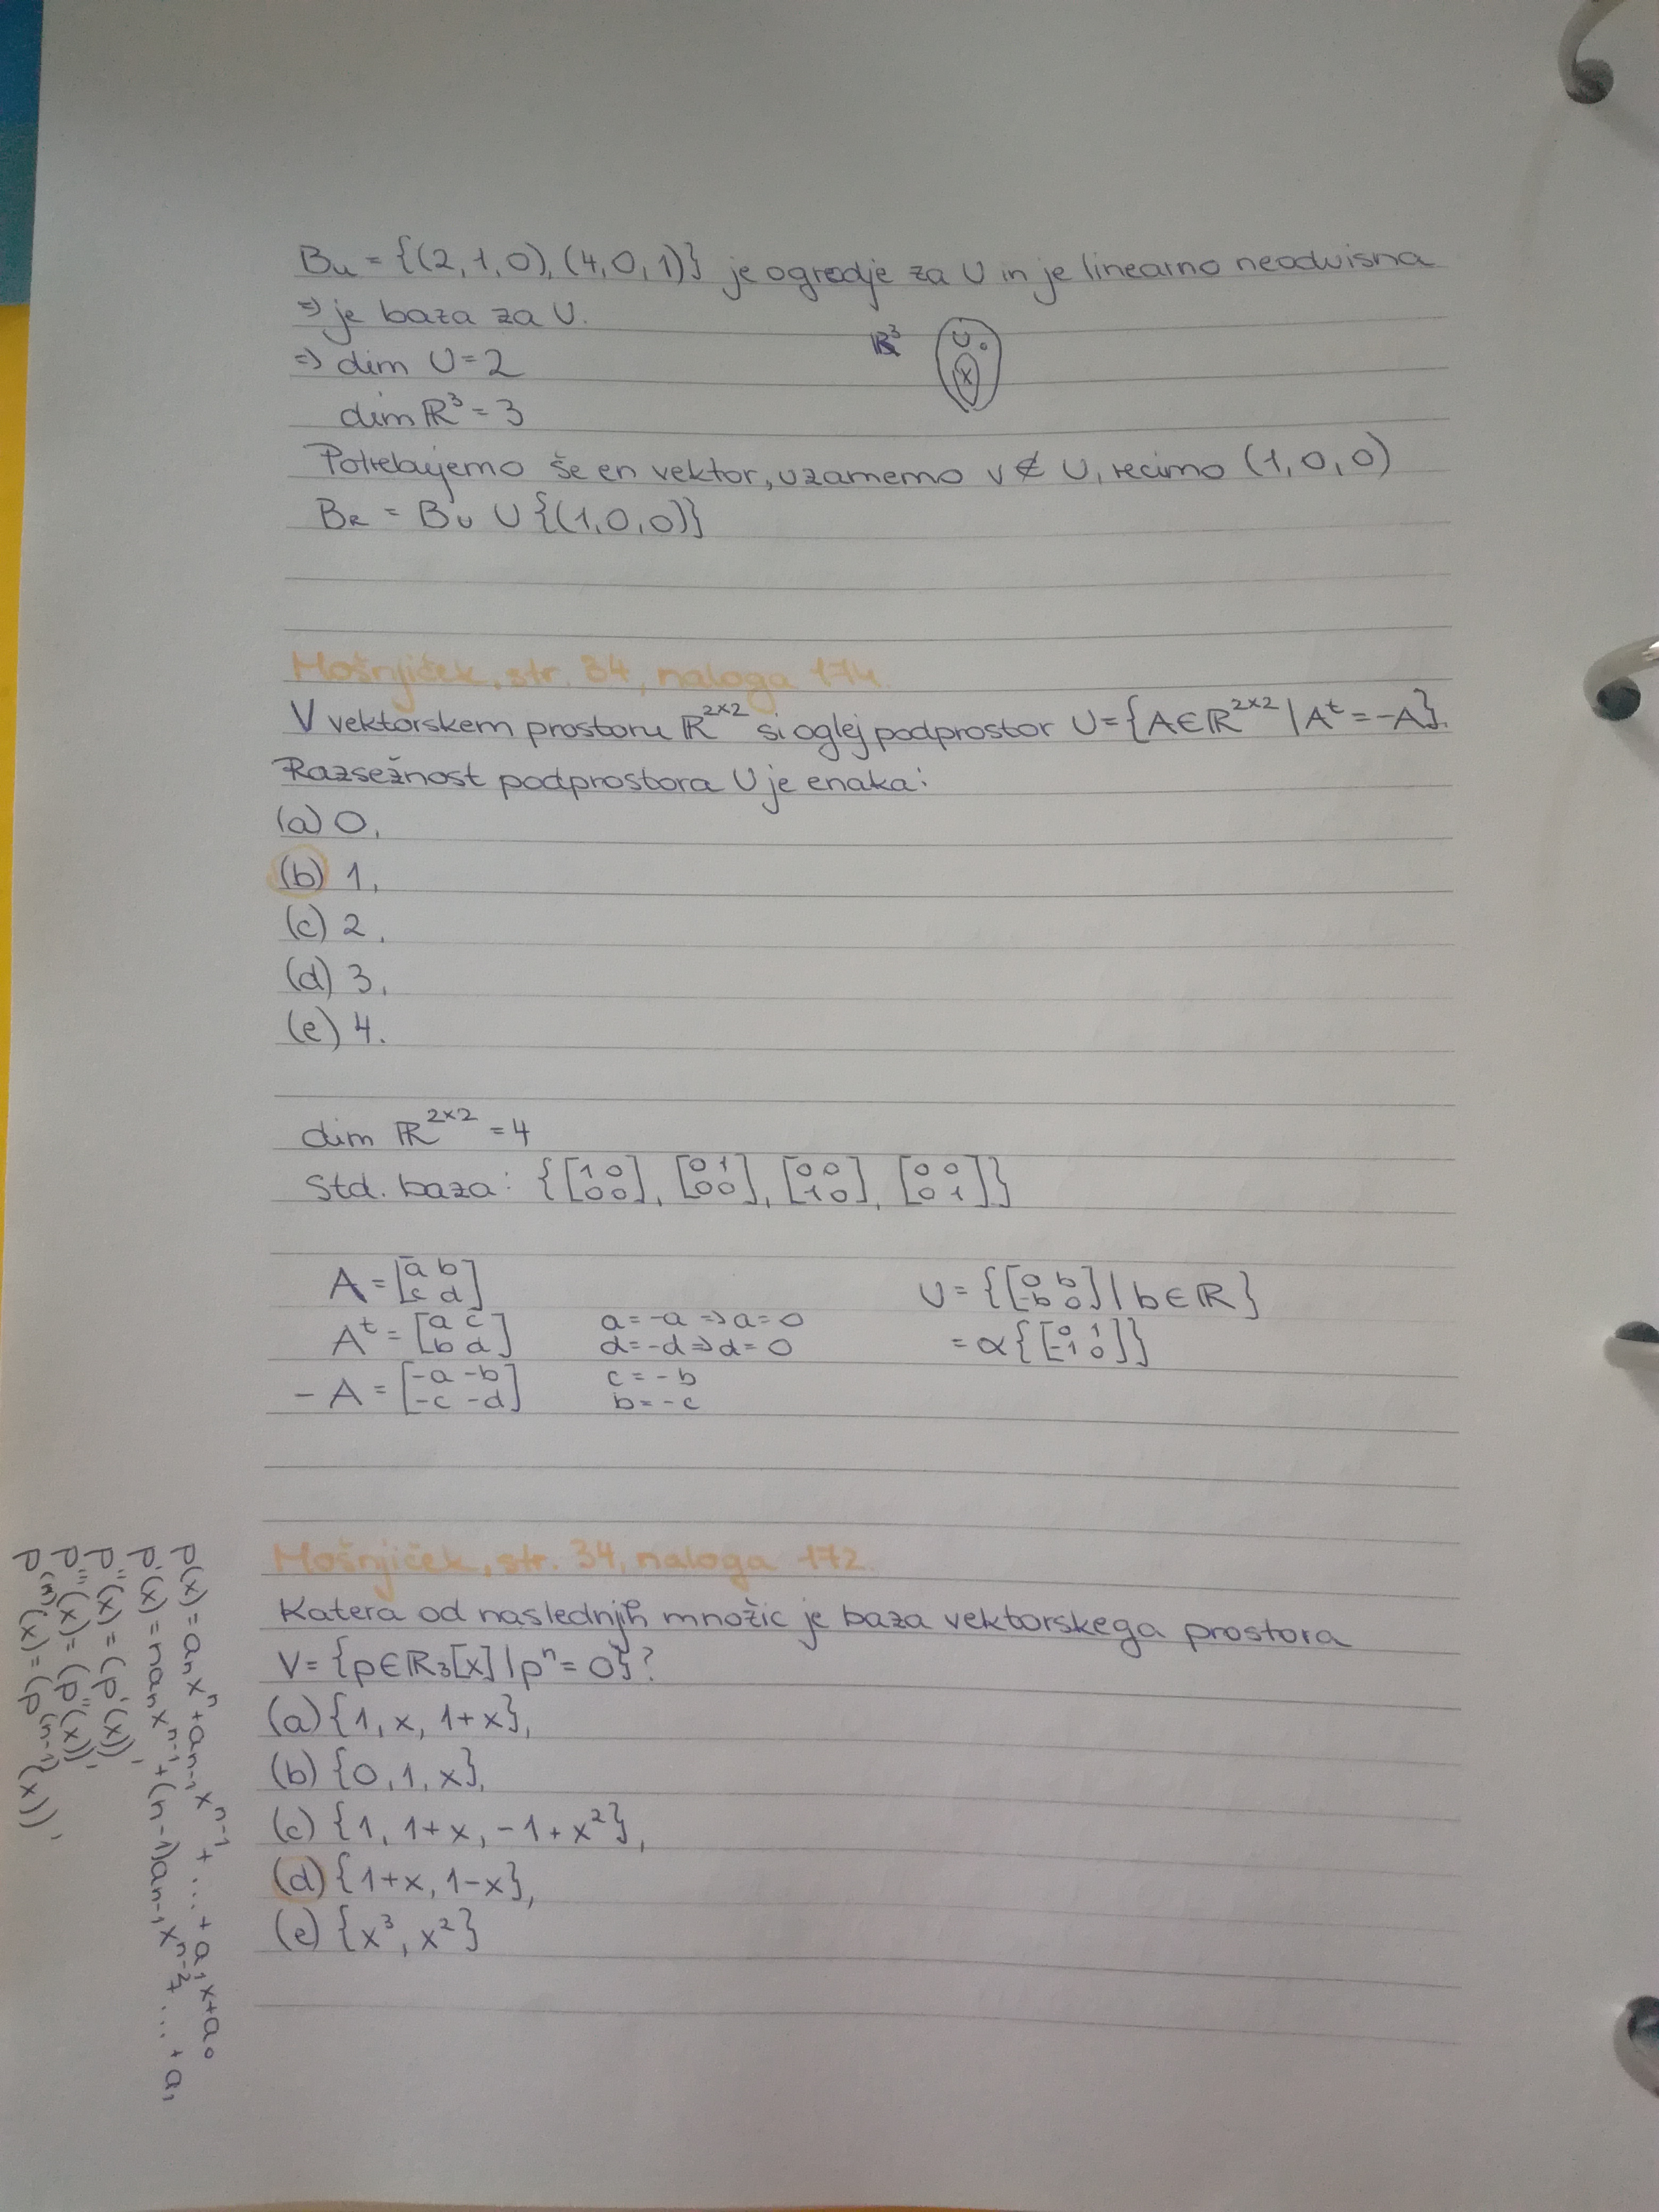 Bu = {(2,1,0), (4,0,1)} je ogrodje za U in je linearno neodvisna
⇒ je baza za U.
⇒ dim U = 2
ℝ³ U. X
dim ℝ³ = 3
Potrebujemo še en vektor, vzamemo v ∉ U, recimo (1,0,0)
Bℝ = Bu ∪ {(1,0,0)}
Mošnjiček, str. 34, naloga 174.
V vektorskem prostoru ℝ²ˣ² si oglej podprostor U = {A ∈ ℝ²ˣ² | Aᵗ = -A}.
Razsežnost podprostora U je enaka:
(a) 0,
(b) 1,
(c) 2,
(d) 3,
(e) 4.
dim ℝ²ˣ² = 4
Std. baza: {[1 0; 0 0], [0 1; 0 0], [0 0; 1 0], [0 0; 0 1]}
A = [a b; c d]
Aᵗ = [a c; b d]
-A = [-a -b; -c -d]
a = -a ⇒ a = 0
d = -d ⇒ d = 0
c = -b
b = -c
U = {[0 b; -b 0] | b ∈ ℝ}
= α{[0 1; -1 0]}
Mošnjiček, str. 34, naloga 172.
Katera od naslednjih množic je baza vektorskega prostora
V = {p ∈ ℝ₃[x] | p" = 0}?
(a) {1, x, 1+x},
(b) {0, 1, x},
(c) {1, 1+x, -1+x²},
(d) {1+x, 1-x},
(e) {x³, x²}
p(x) = aₙxⁿ + aₙ₋₁xⁿ⁻¹ + ... + a₁x + a₀
p'(x) = naₙxⁿ⁻¹ + (n-1)aₙ₋₁xⁿ⁻² + ... + a₁
p''(x) = (p'(x))'
p'''(x) = (p''(x))'
p⁽ⁿ⁾(x) = (p⁽ⁿ⁻¹⁾(x))'